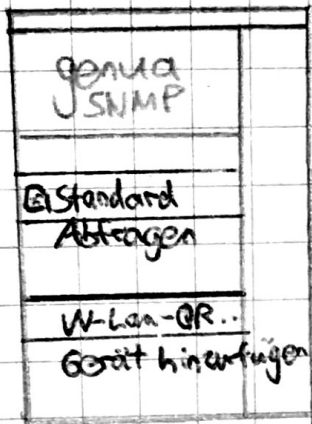 genua
SNMP
Standard
Abfragen
W-Lan-QR..
Gerät hinzufügen